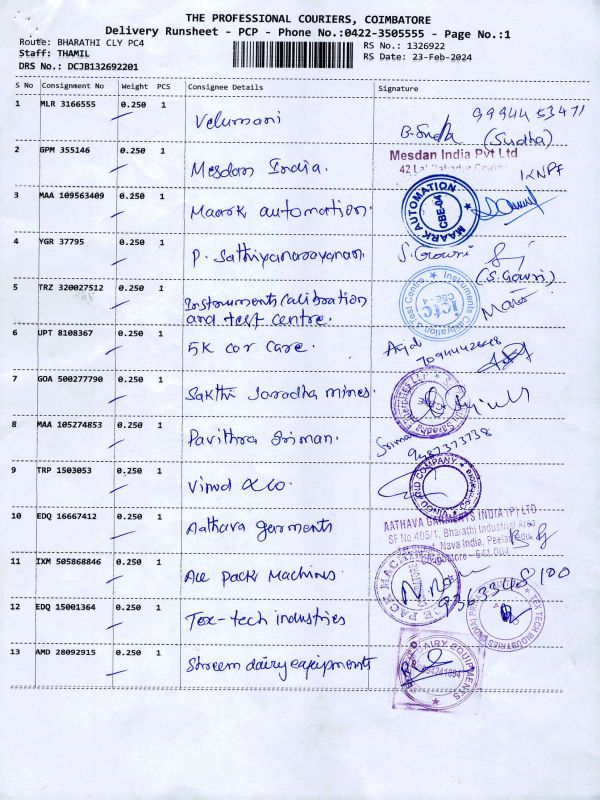 THE PROFESSIONAL COURIERS, COIMBATORE
Delivery Runsheet - PCP - Phone No.:0422-3505555 - Page No.:1
Route: BHARATHI CLY PC4
RS No.: 1326922
Staff: THAMIL
RS Date: 23-Feb-2024
DRS No.: DCJB132692201
S No Consignment No Weight PCS Consignee Details Signature
1 MLR 3166555 0.250 1 Velumani B. (Sudha)
2 GPM 355146 0.250 1 Mesdan India. Mesdan India Pvt Ltd
42
3 MAA 109563409 0.250 1 Maark automation. MAARK AUTOMATION CBE-04
4 YGR 37795 0.250 1 P. Sathiyanarayanan. S. Gowri (S. Gowri)
5 TRZ 320027512 0.250 1 Instruments Calibration Instruments Calibration & Test Centre ictc CBE-4
and test centre.
6 UPT 8108367 0.250 1 5K car care.
7 GOA 500277790 0.250 1 Sakthi Saradha mines.
8 MAA 105274853 0.250 1 Pavithra Sriman.
9 TRP 1503053 0.250 1 Vinod &co.
10 EDQ 16667412 0.250 1 Aathava garments AATHAVA GARMENTS INDIA PVT LTD
SF No.405/1, Bharathi Industrial Area
Nava India, Peelamedu
Coimbatore - 641 004
11 IXM 505868846 0.250 1 Ace pack Machines
12 EDQ 15001364 0.250 1 Tex-tech industries TEX TECH INDUSTRIES
13 AMD 28092915 0.250 1 Streem dairy equipments DAIRY EQUIPMENTS